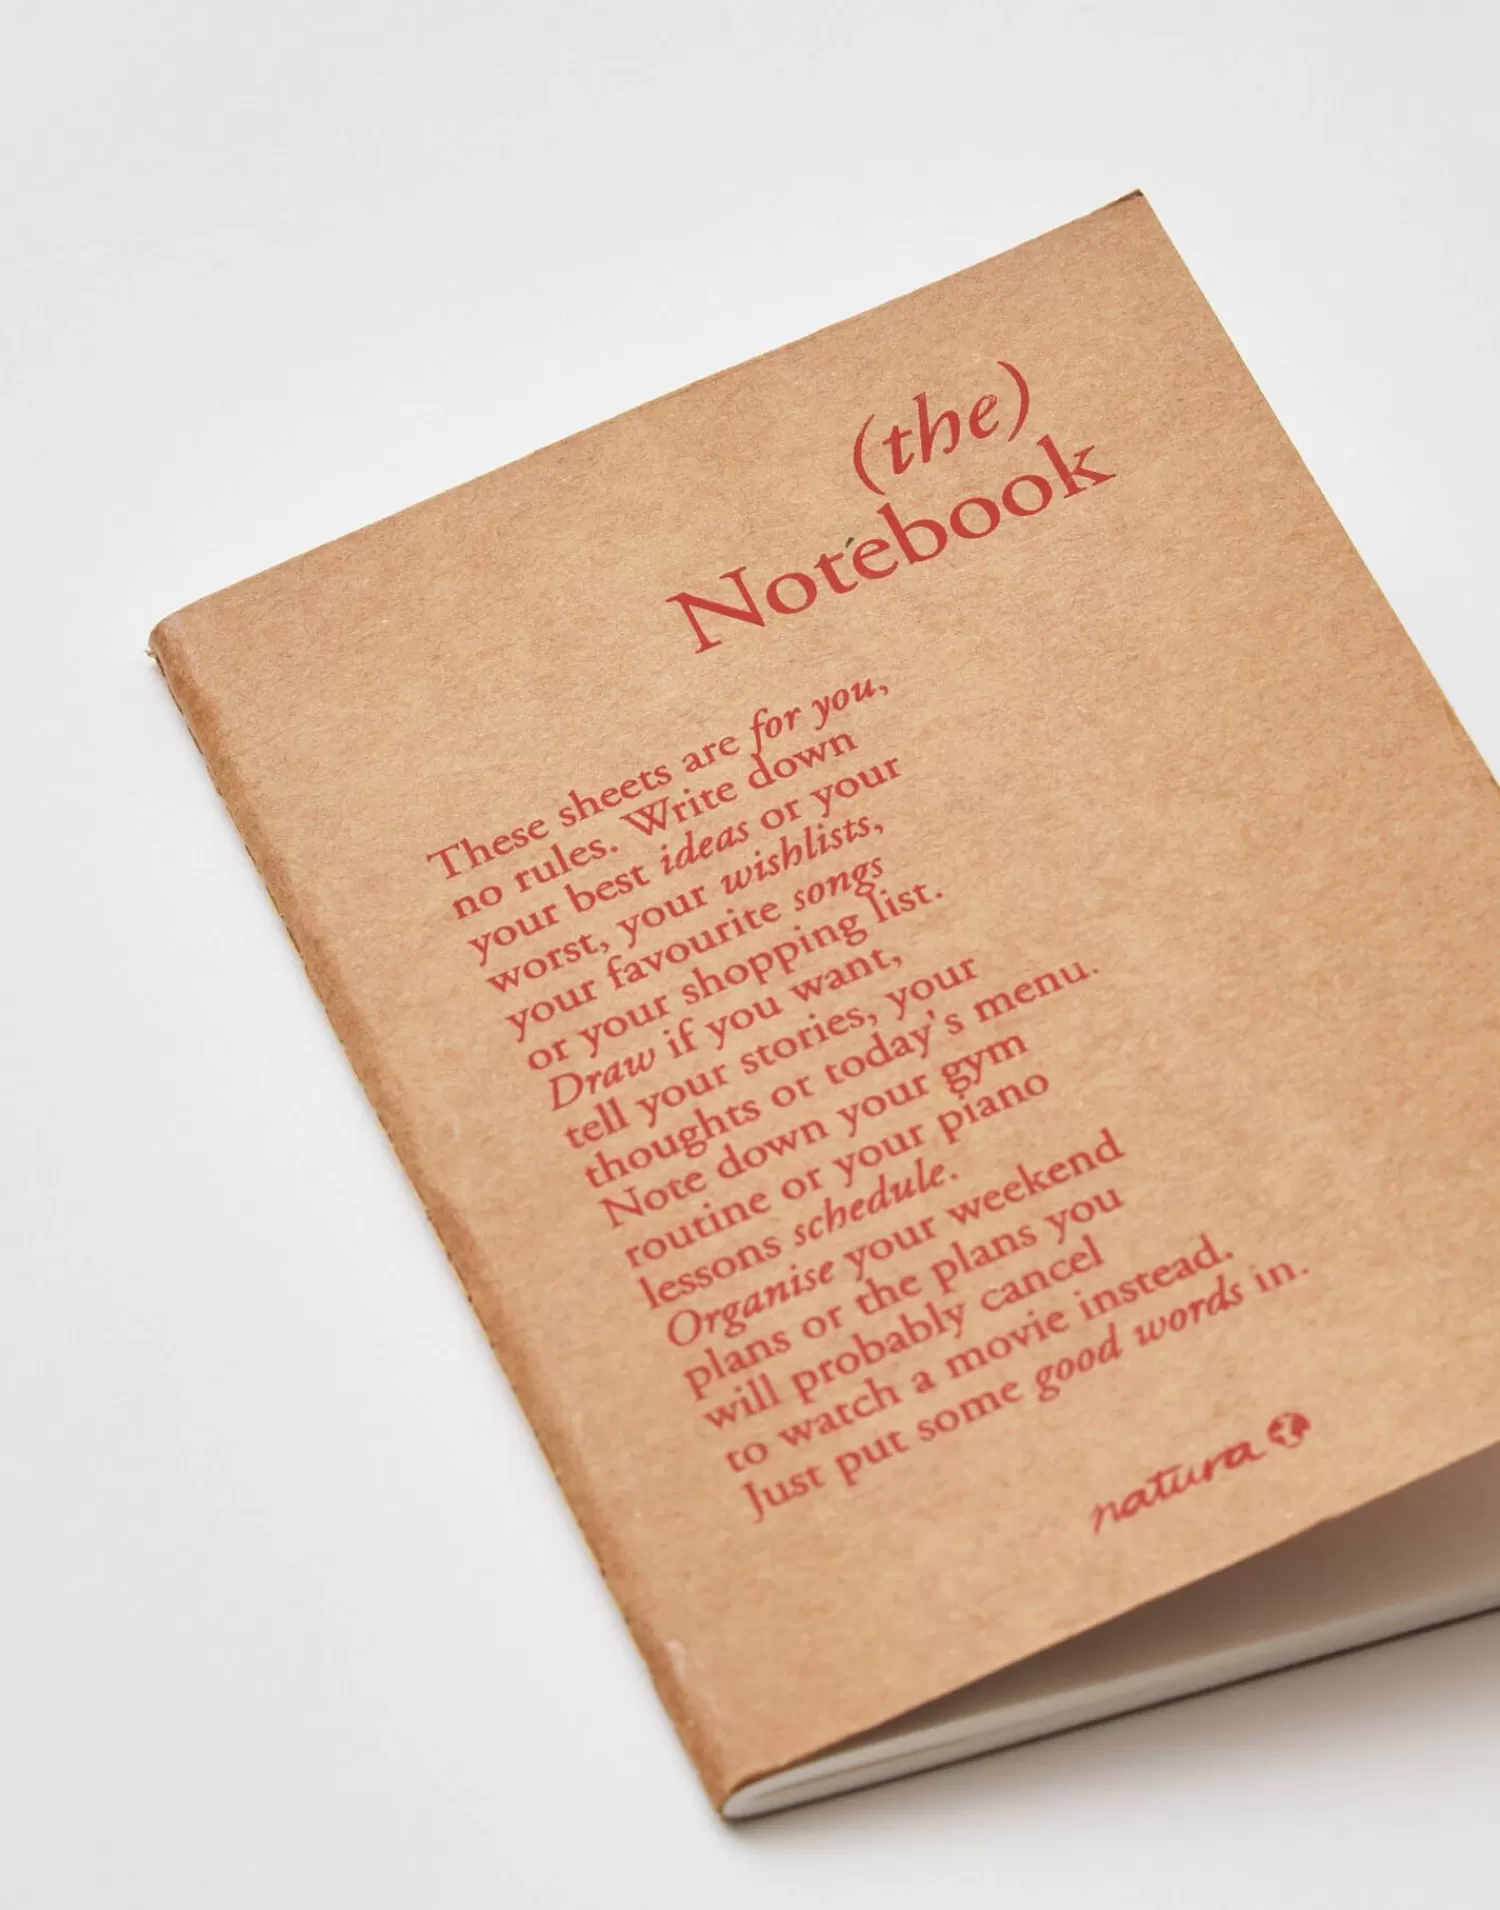 (the)
Notebook
These sheets are for you,
no rules. Write down
your best ideas or your
worst, your wishlists,
your favourite songs
or your shopping list.
Draw if you want,
tell your stories, your
thoughts or today's menu.
Note down your gym
routine or your piano
lessons schedule.
Organise your weekend
plans or the plans you
will probably cancel
to watch a movie instead.
Just put some good words in.
natura